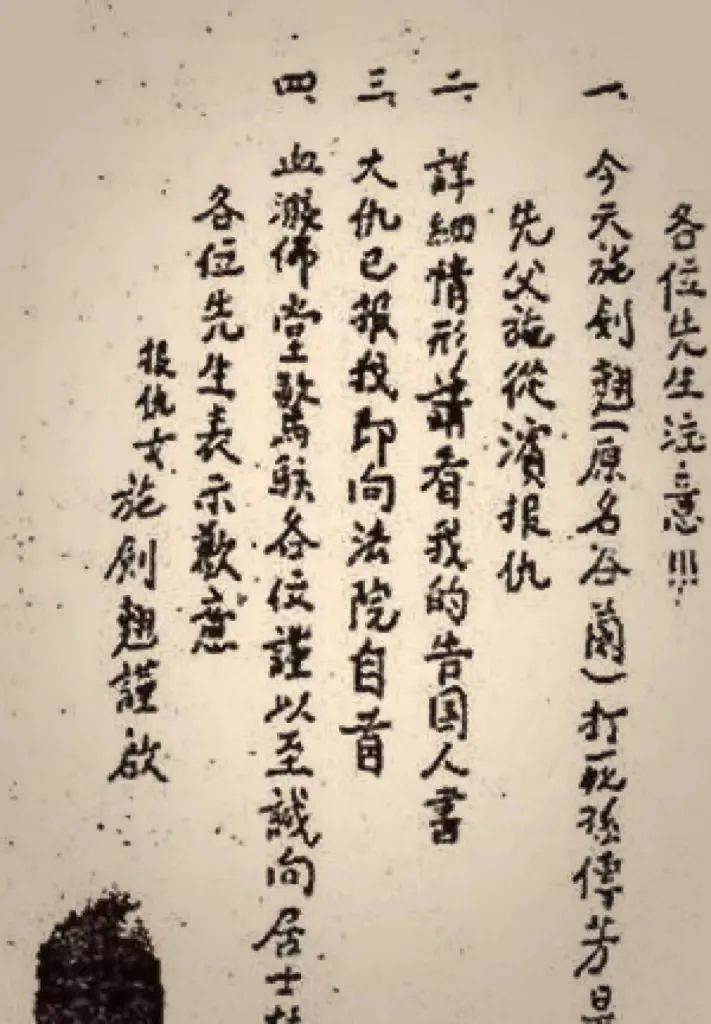 各位先生注意!!!
一、今天施剑翘(原名谷蘭)打死孫傳芳是
先父施從濱報仇
二、詳細情形請看我的告国人書
三、大仇已报我即向法院自首
四、血濺佛堂驚駭各位謹以至誠向居士林
各位先生表示歉意
报仇女 施剑翘謹啟